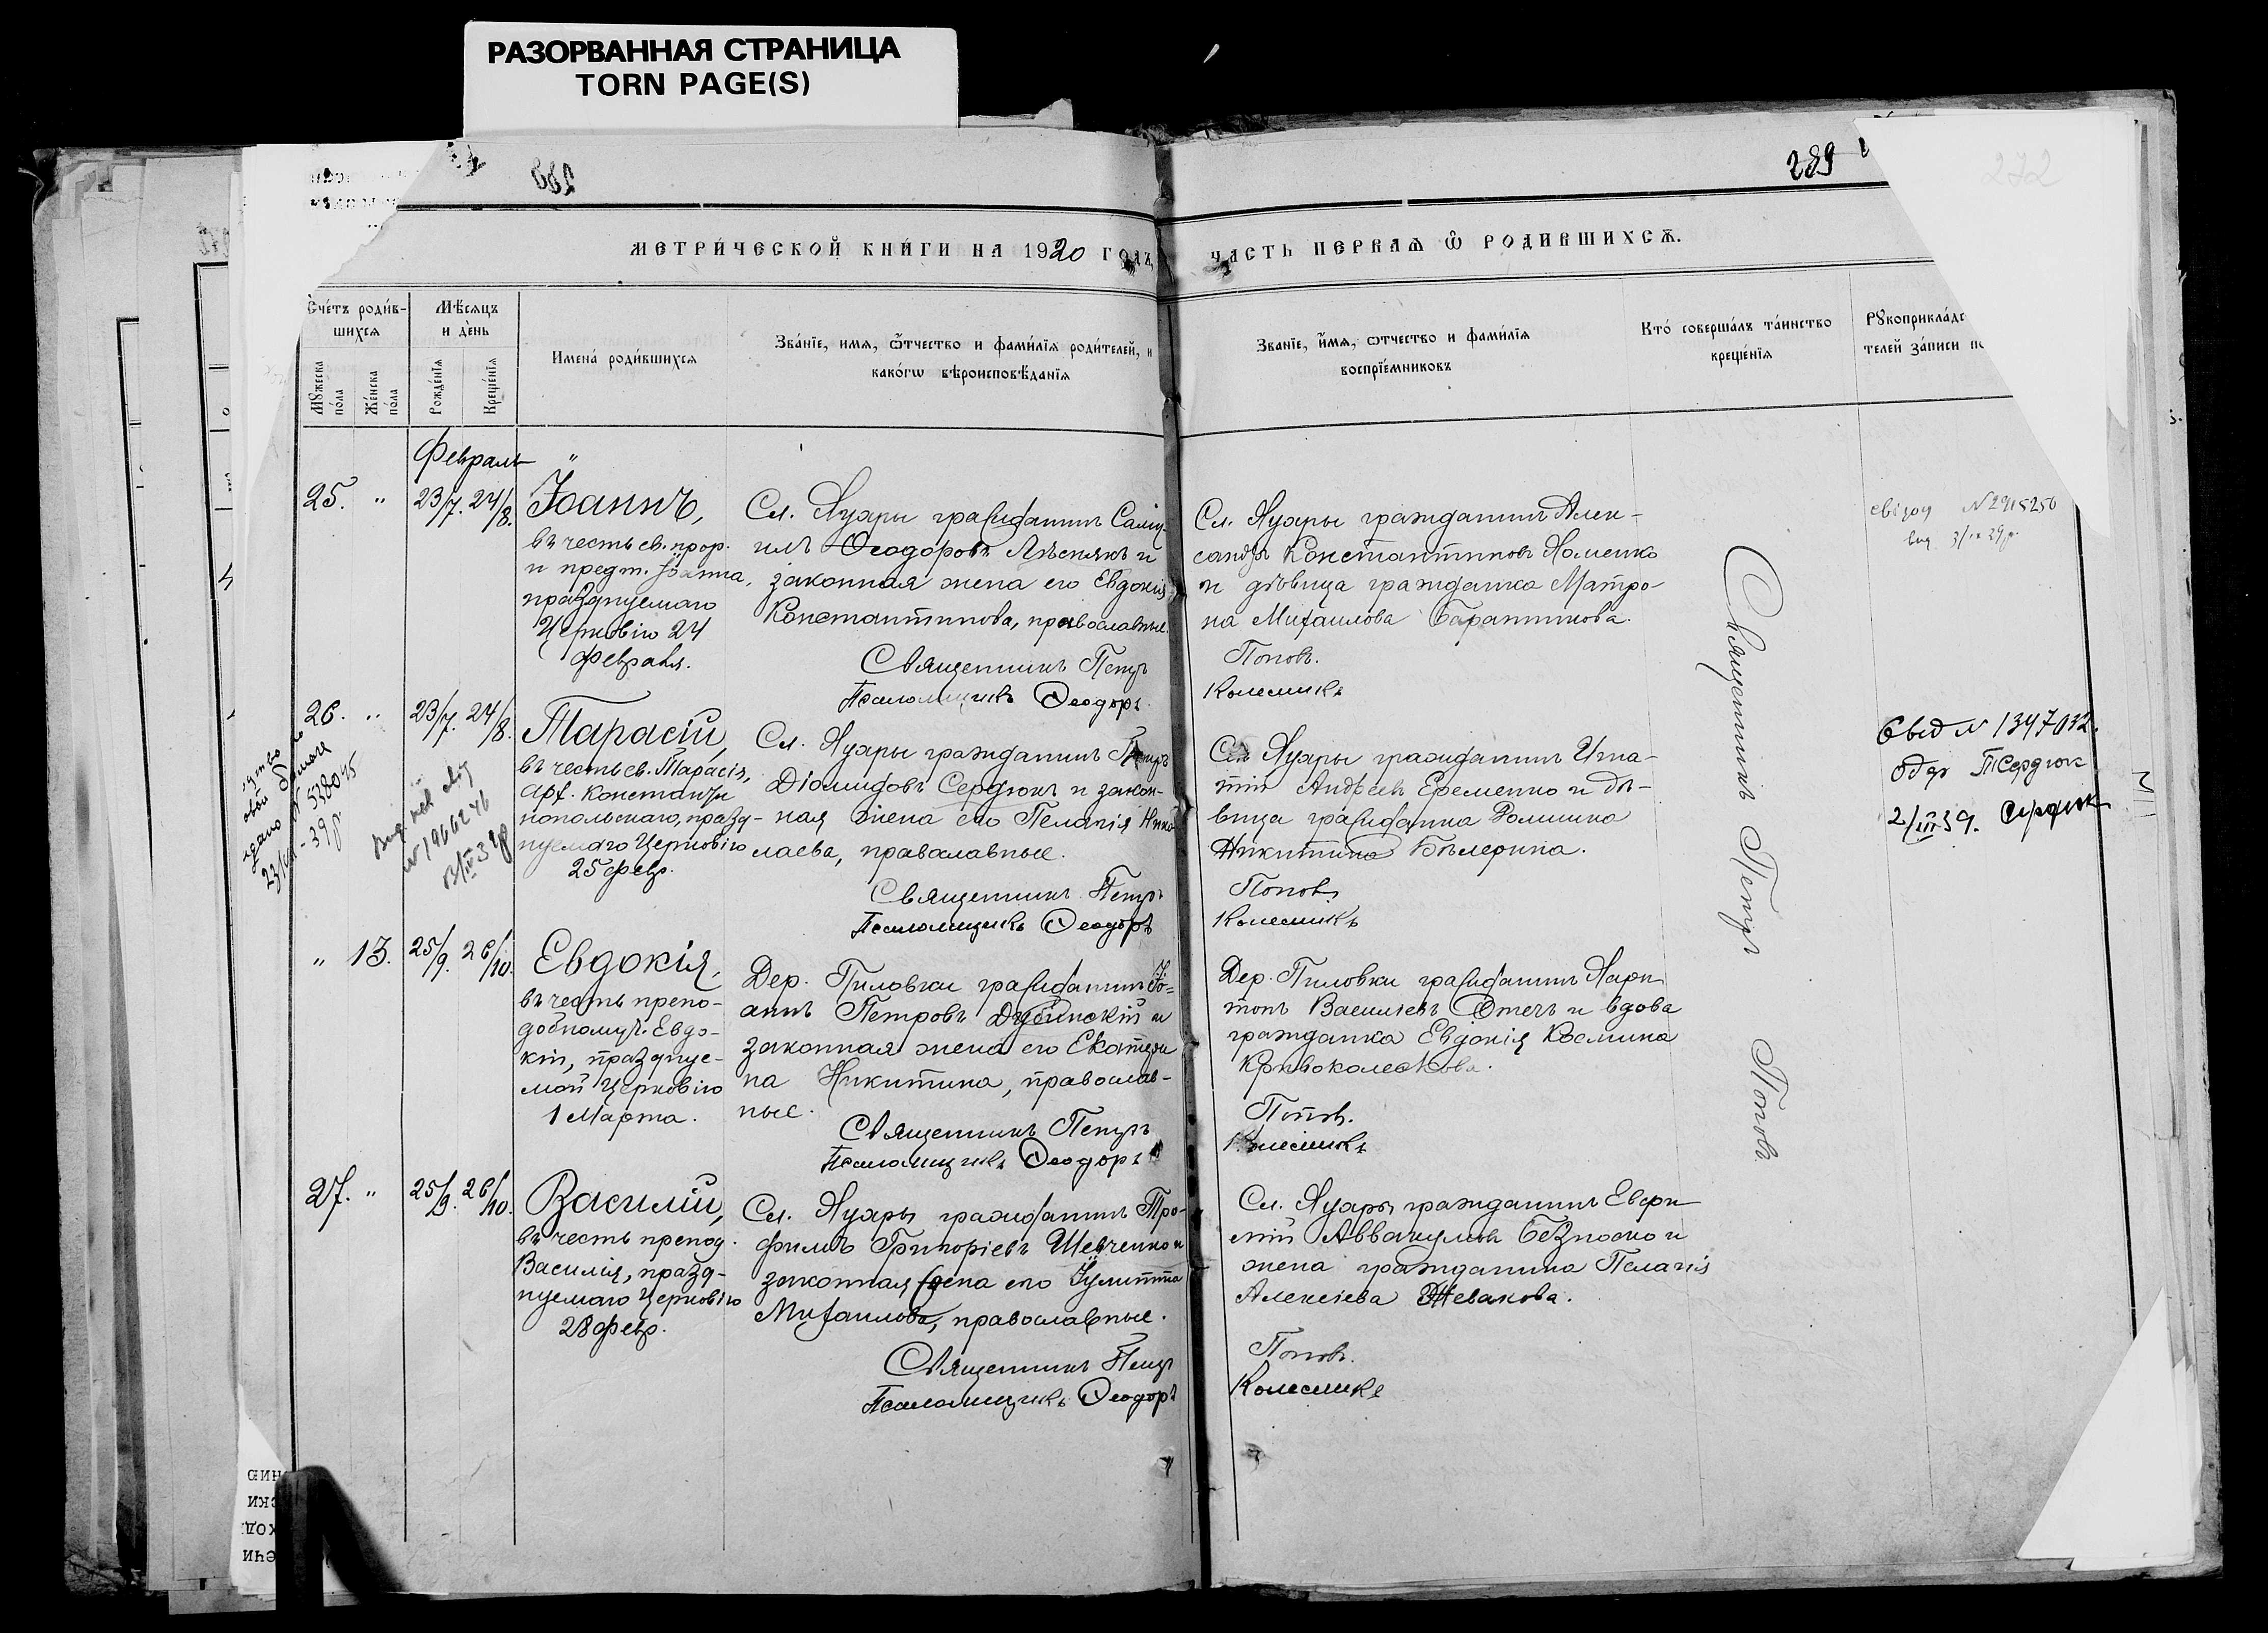 РАЗОРВАННАЯ СТРАНИЦА
TORN PAGE(S)
289
272
МЕТРИ́ЧЕСКОЙ КНИ́ГИ НА 1920 ГОДЪ,
ЧАСТЬ ПЕРВАѦ Ѿ РОДИВШИХСѦ.
Сче́тъ роди́в-
шихсѧ
Мꙋжеска по́ла
Же́нска по́ла
Мѣ́сѧцъ
и де́нь
Рожде́нїѧ
Креще́нїѧ
Имена́ роди́вшихсѧ
Зва́нїе, имѧ, ѻ҆́тчество и фами́лїѧ роди́телей, и
како́гѡ вѣроисповѣ́данїѧ
Званїе, и҆́мѧ, ѻтчество и фами́лїѧ
воспрїе́мниковъ
Кто́ соверша́лъ та́инство
креще́нїѧ
Рꙋкоприкла́дс
телей за́писи по
Февраль "
25. " 23/7. 24/8.
Іоаннъ,
въ честь св. прор.
и предт. Іоанна,
празднуемаго
Церковію 24
февраля.
Сл. Ауары гражданинъ
илъ Ѳеодоровъ и
законная жена его Евдокія
Константинова, православные.
Священникъ Петръ
Псаломщикъ Ѳеодоръ
Сл. Ауары гражданинъ Алек-
сандръ Константиновъ Хоменко
и дѣвица гражданка Матро-
на Михаилова Баранникова.
Поповъ.
Колесникъ
N 2915250
3/IX 29 р.
26. " 23/7. 24/8.
Тарасій,
въ честь св. Тарасія,
арх. Константи-
нопольскаго, празд-
нуемаго Церковію
25 февр.
Сл. Ауары гражданинъ Петръ
Діомидовъ Сердюкъ и закон-
ная жена его Пелагія Нико-
лаева, православные.
Священникъ Петръ
Псаломщикъ Ѳеодоръ
Сл. Ауары гражданинъ Игна-
тій Андреевъ Еременко и дѣ-
вица гражданка
Никитина
Поповъ.
Колесникъ
N 528045
39 р
N 1966246
Свид N 1347032.
одер Т Сердюк
2/III 39. Сердюк
" 13. 25/9. 26/10.
Евдокія,
въ честь препо-
добномуч. Евдо-
кіи, празднуе-
мой Церковію
1 Марта.
Дер. Пиловки гражданинъ Іо-
аннъ Петровъ Дубинскій и
законная жена его Екатери
на Никитина, православ-
ные.
Священникъ Петръ
Псаломщикъ Ѳеодоръ
Дер. Пиловки гражданинъ Хари
тонъ Васильевъ Отечъ и вдова
гражданка Евдокія Косьмина
Кривоколескова.
Поповъ.
Колесникъ
27. " 25/9. 26/10.
Василій,
въ честь препод.
Василія, празд-
нуемаго Церковію
28 февр.
Сл. Ауары гражданинъ Тро-
фимъ Григоріевъ Шевченко и
законная жена его Іулитта
Михаилова, православные.
Священникъ Петръ
Псаломщикъ Ѳеодоръ
Сл. Ауары гражданинъ
Аввакумовъ Безноско и
жена гражданина Пелагія
Алексіева Жевакова.
Поповъ.
Колесникъ
Священникъ Петръ Поповъ